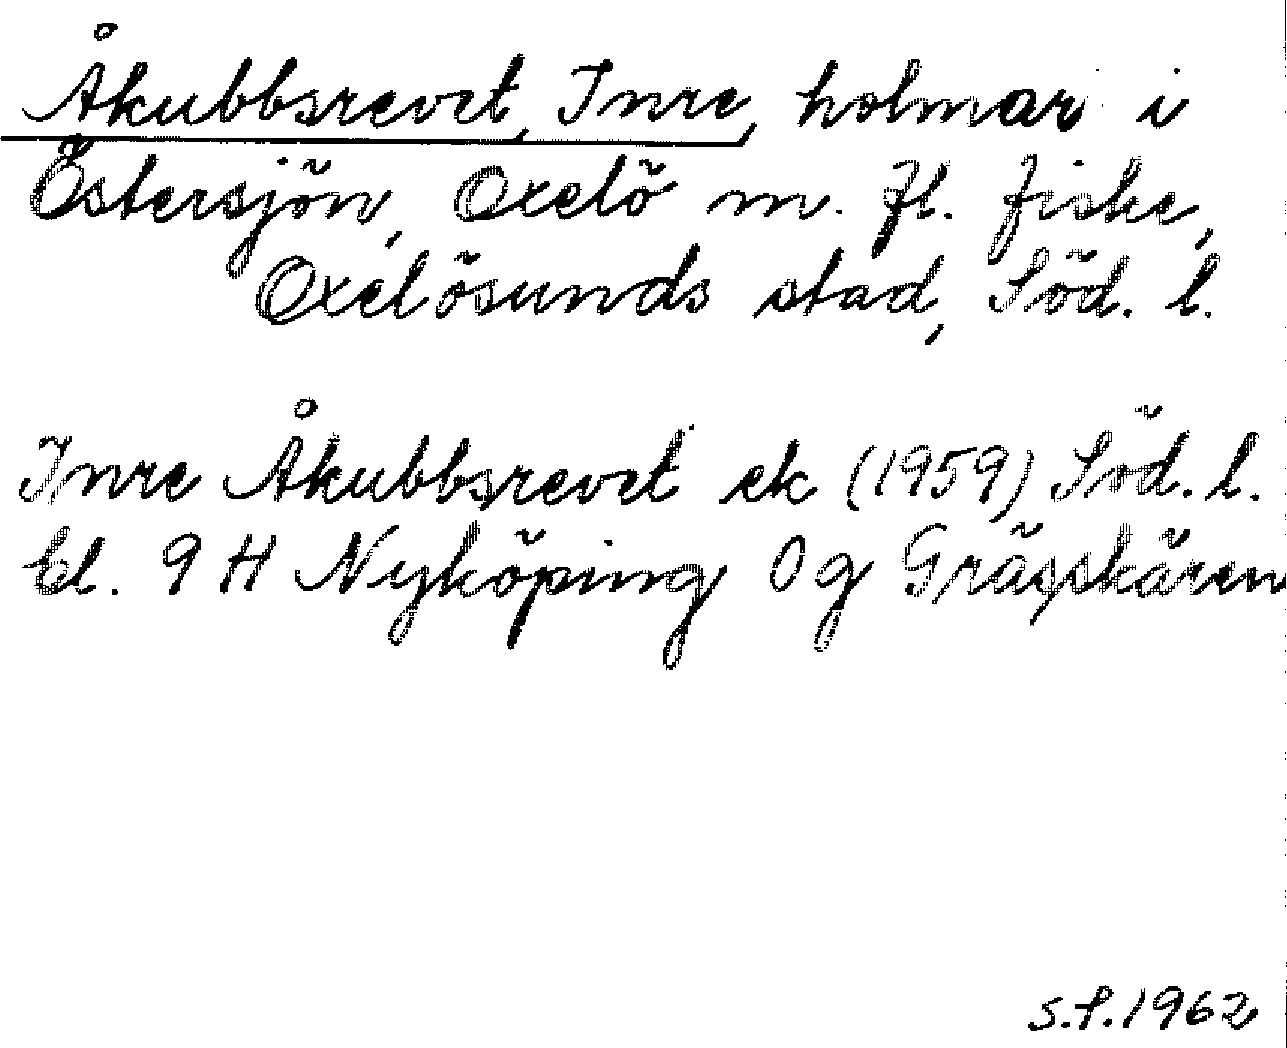 Åkubbsrevet, Inre, holmar i
Östersjön, Oxelö m. fl. fiske,
Oxelösunds stad, Söd. l.
Inre Åkubbsrevet ek (1959) Söd. l.
bl. 9 H Nyköping 0g Grässkären
S.F. 1962